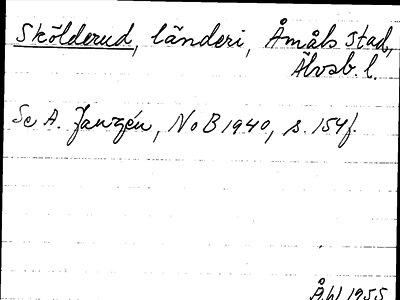 Skölderud, länderi, Åmåls stad,
Älvsb. l.
Se A. Janzén, NoB 1940, s. 154f.
ÅW 1955